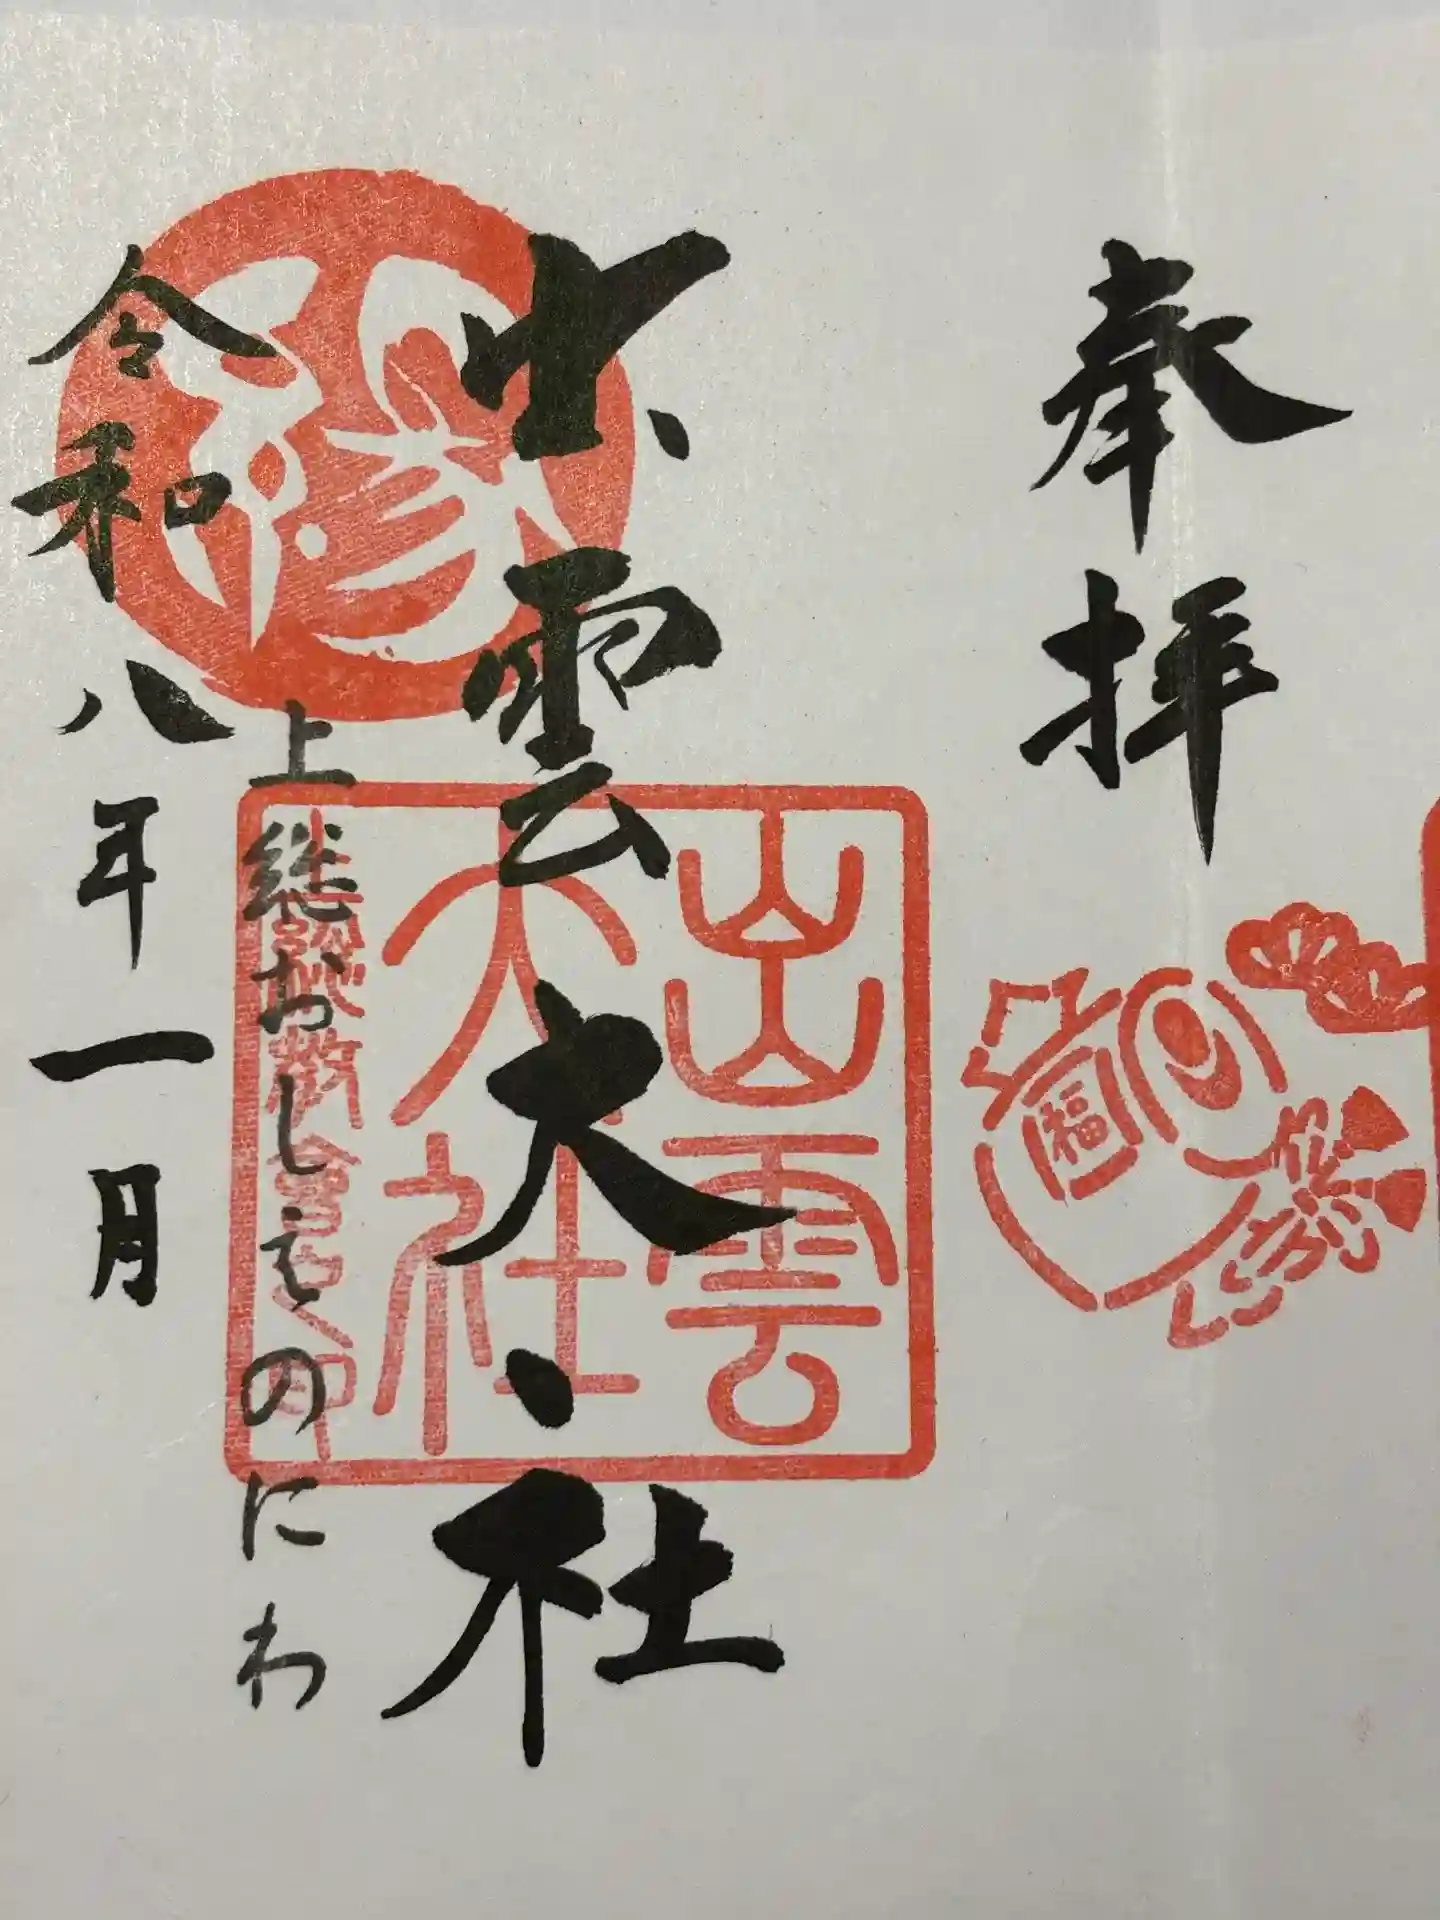 奉拝
福
出雲大社
出雲
大社
縁
上総おしえのにわ
令和八年一月